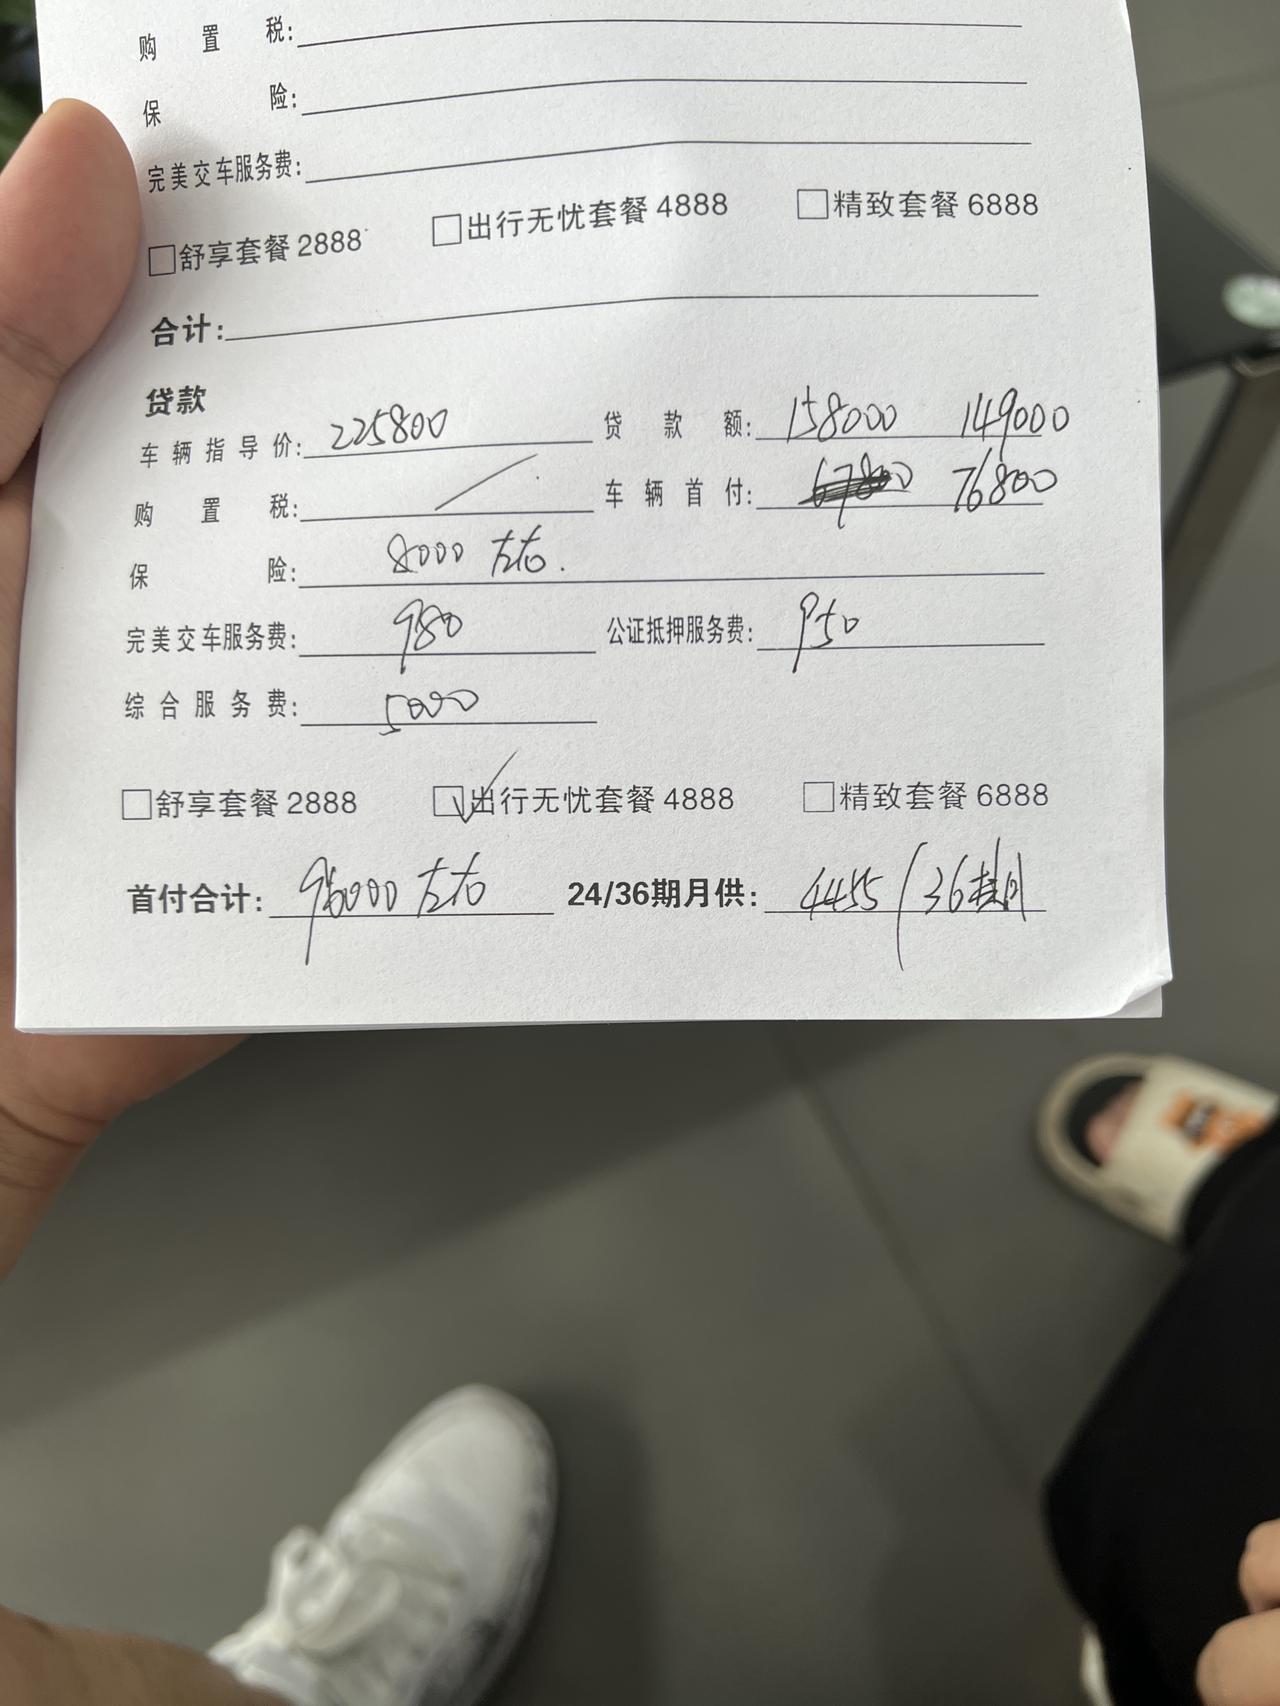 购置税:
保险:
完美交车服务费:
□舒享套餐 2888 □出行无忧套餐 4888 □精致套餐 6888
合计:
贷款
车辆指导价: 225800 贷款额: 158000 149000
购置税: / 车辆首付: 67800 76800
保险: 8000 左右.
完美交车服务费: 980 公证抵押服务费: 950
综合服务费: 5000
□舒享套餐 2888 ☑出行无忧套餐 4888 □精致套餐 6888
首付合计: 96000 左右 24/36期月供: 4455 / 36